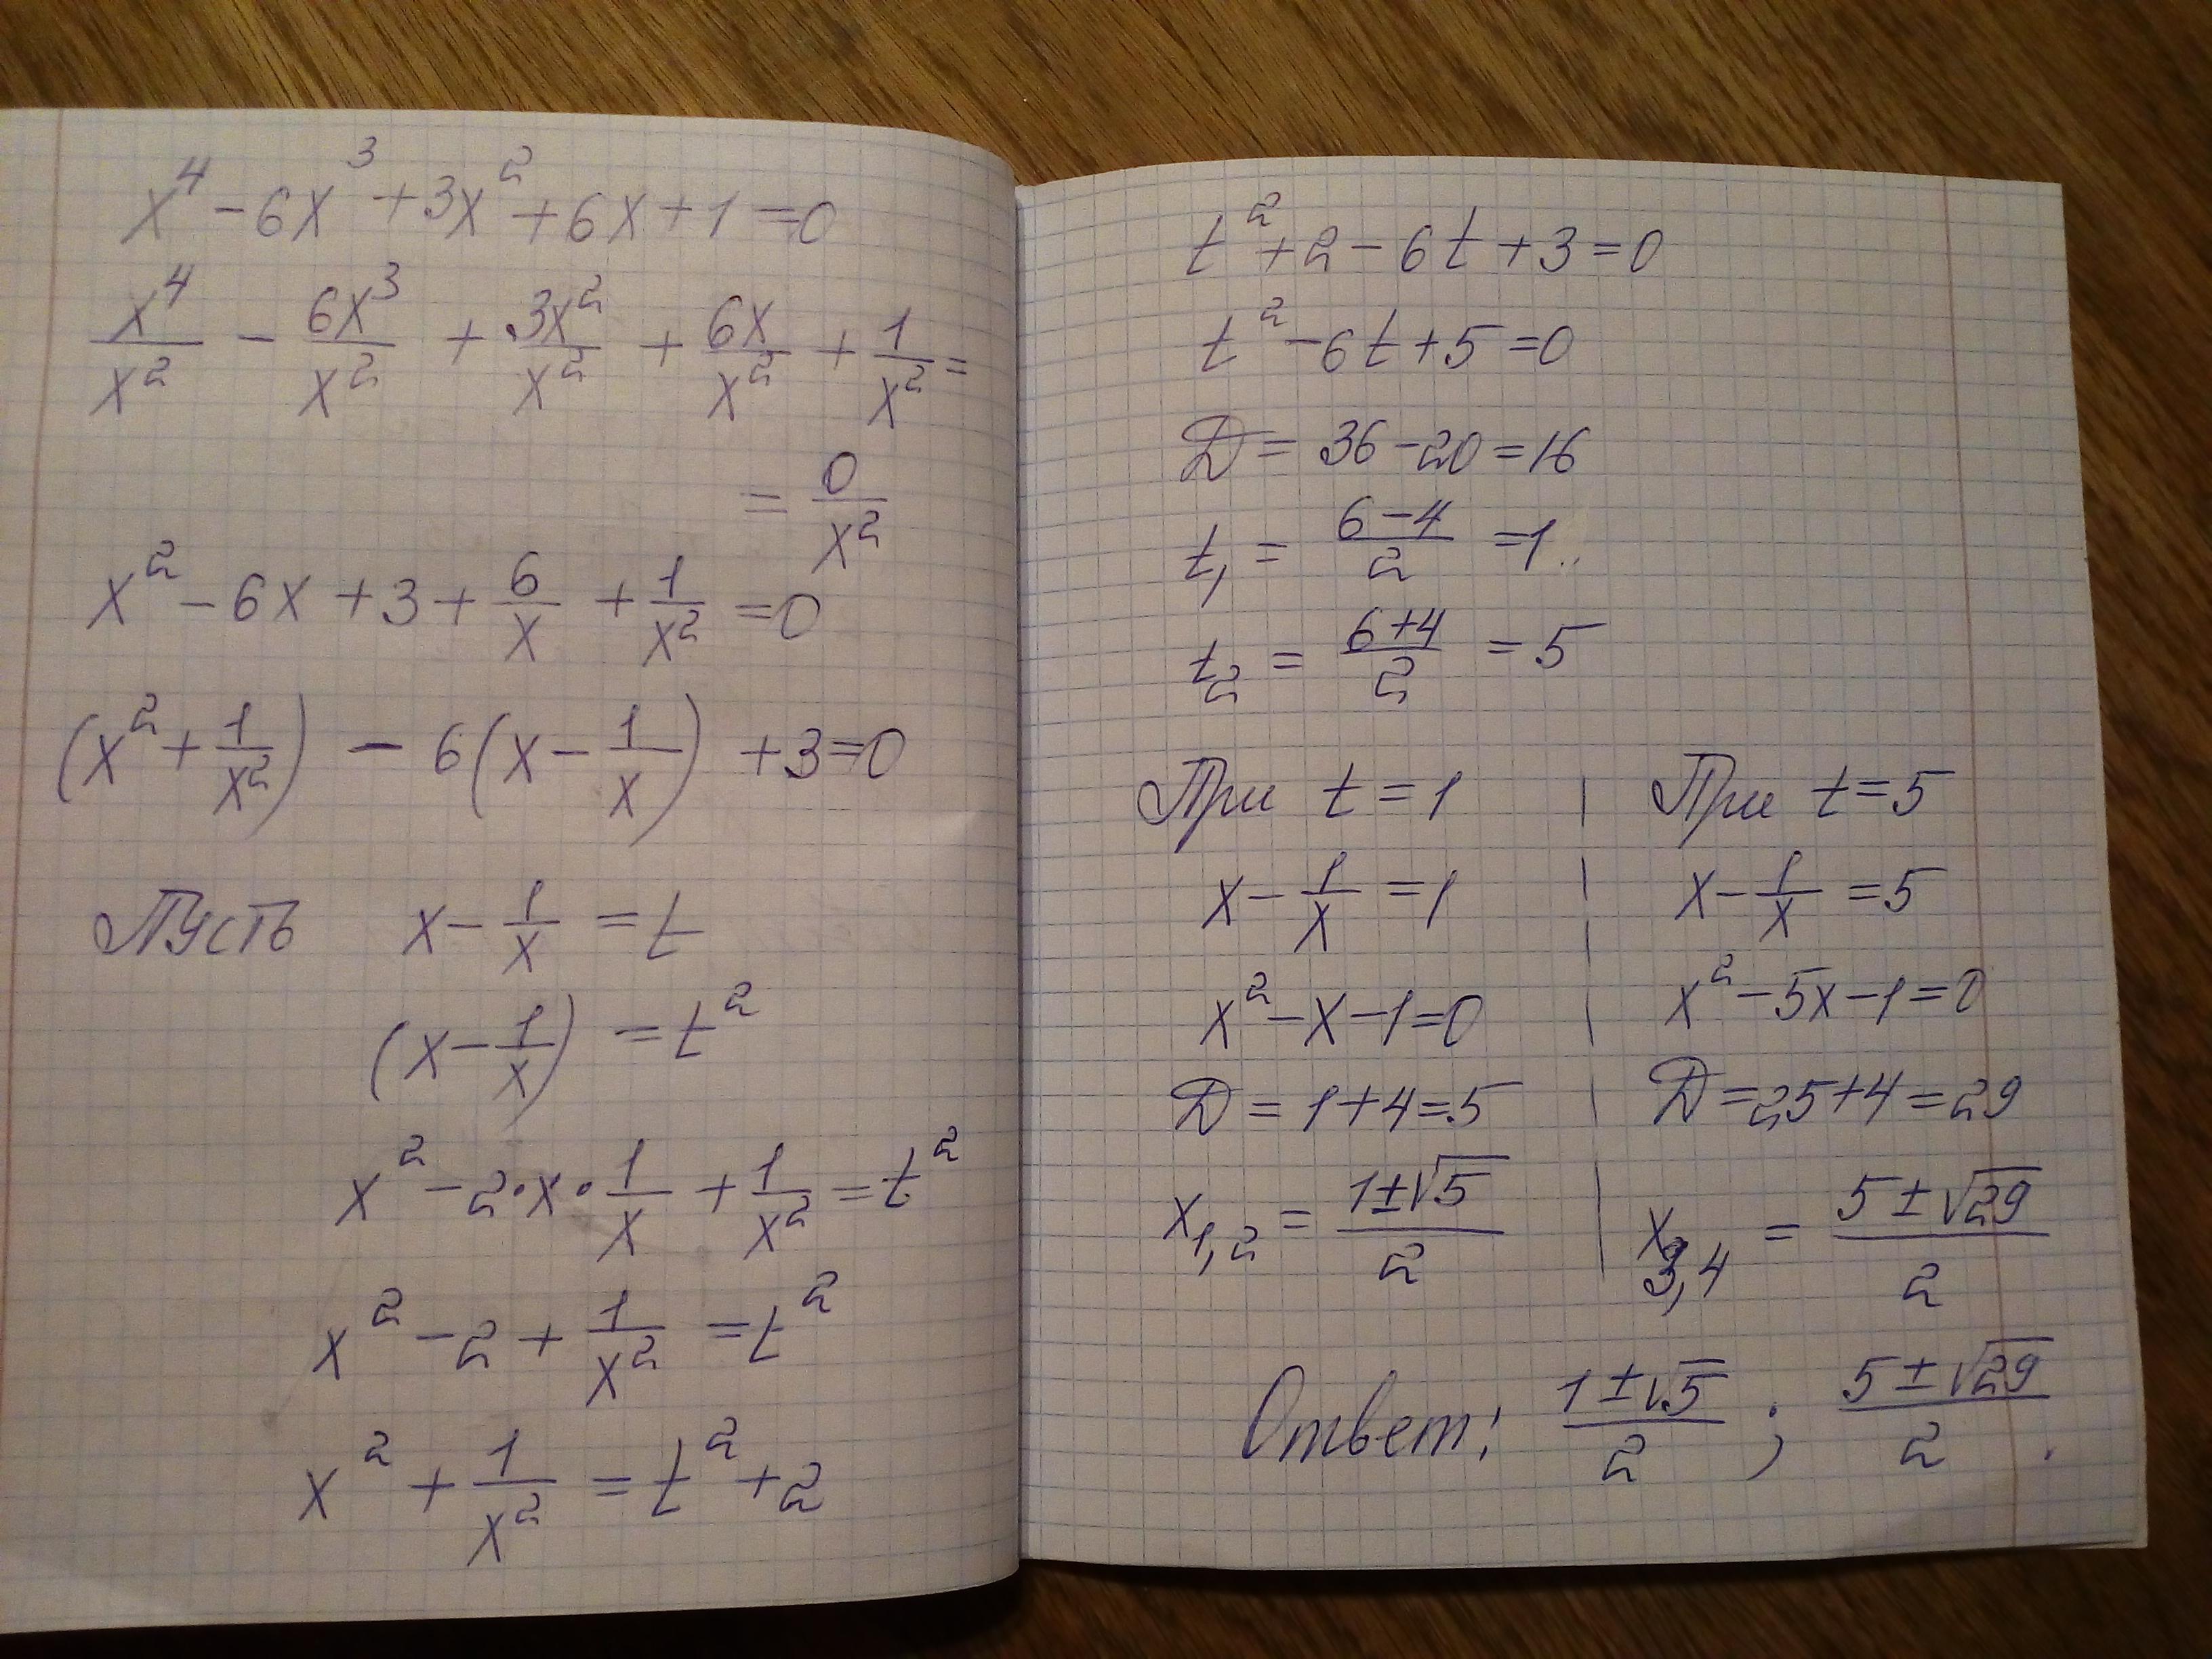 x⁴ - 6x³ + 3x² + 6x + 1 = 0
x⁴/x² - 6x³/x² + 3x²/x² + 6x/x² + 1/x² =
= 0/x²
x² - 6x + 3 + 6/x + 1/x² = 0
(x² + 1/x²) - 6(x - 1/x) + 3 = 0
Пусть x - 1/x = t
(x - 1/x) = t²
x² - 2·x·1/x + 1/x² = t²
x² - 2 + 1/x² = t²
x² + 1/x² = t² + 2
t² + 2 - 6t + 3 = 0
t² - 6t + 5 = 0
Д = 36 - 20 = 16
t₁ = (6-4)/2 = 1
t₂ = (6+4)/2 = 5
При t = 1 | При t = 5
x - 1/x = 1 | x - 1/x = 5
x² - x - 1 = 0 | x² - 5x - 1 = 0
Д = 1 + 4 = 5 | Д = 25 + 4 = 29
x₁,₂ = (1 ± √5)/2 | x₃,₄ = (5 ± √29)/2
Ответ: (1 ± √5)/2 ; (5 ± √29)/2 .